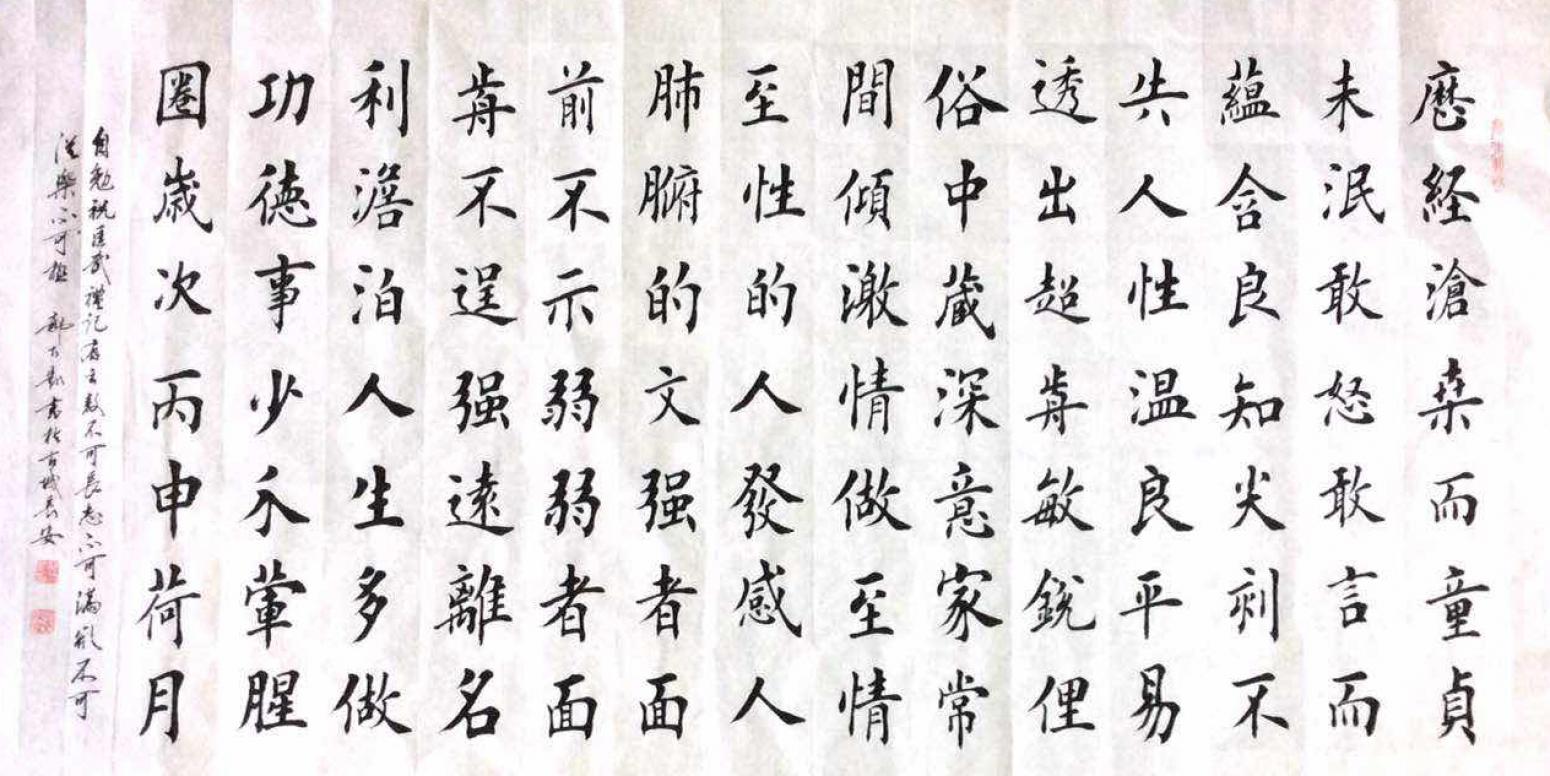 厯経滄桒而童貞
未泯敢怒敢言而
蘊含良知尖刻不
失人性温良平易
透出超歬敏鋭俚
俗中蔵深意家常
間傾激情做至情
至性的人發感人
肺腑的文强者面
前不示弱弱者面
歬不逞强遠離名
利澹泊人生多做
功徳事少介葷腥
圈歳次丙申荷月
自勉禮記有云敖不可長志不可滿欲不可
從樂不可極 書於古城長安